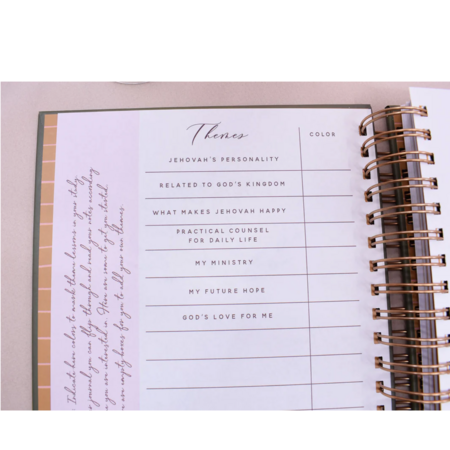 Themes
COLOR
JEHOVAH'S PERSONALITY
RELATED TO GOD'S KINGDOM
WHAT MAKES JEHOVAH HAPPY
PRACTICAL COUNSEL
FOR DAILY LIFE
MY MINISTRY
MY FUTURE HOPE
GOD'S LOVE FOR ME
Indicate here colors to mark these lessons in your study
journal you can flip through and read your notes according
are interested in. Here are some to get you started.
are empty boxes for you to add your own themes.